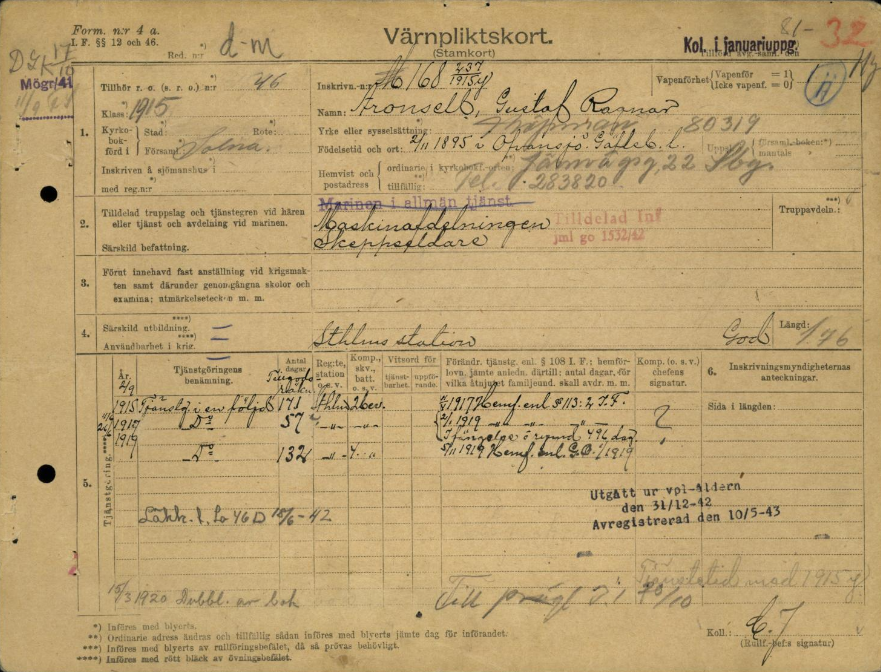 Form. n:r 4 a.
I. F. §§ 12 och 46.
Red. n:r *) d-m
Värnpliktskort.
(Stamkort)
Kol. i januariuppg.
81-
32
Mögr/41
Tillhör r. o. (s. r. o.) n:r 46
Klass: 1915
1.
Kyrkobokförd i
Stad: Rote:
Församl. Solna
Inskriven å sjömanshus i
med reg.n:r
Inskrivn. n:r: M 168 237/1915
Namn: Aronsell, Gustaf Ragnar
Vapenförhet Vapenför = 1
Icke vapenf. = 0
11
Yrke eller sysselsättning: 80319
Födelsetid och ort: 2/11 1895 i Ofvansjö. Gäfleb. l.
Hemvist och postadress
ordinarie i kyrkobokf.-orten: Järnvägsg. 22 Sbg.
tillfällig: Tel. 283820.
Marinen i allmän tjänst
2. Tilldelad truppslag och tjänstegren vid hären
eller tjänst och avdelning vid marinen.
Särskild befattning.
Maskinafdelningen
Skeppseldare
Tilldelad Inf
jml go 1532/42
Truppavdeln.:
3. Förut innehavd fast anställning vid krigsmak-
ten samt därunder genomgångna skolor och
examina; utmärkelsetecken m. m.
4. Särskild utbildning. ****)
Användbarhet i krig. ***)
Sthlms station
God
Längd: 1/76
År. Tjänstgöringens benämning. Antal dagar. Reg:te, station o. s. v. Komp., skv., batt. o. s. v. Vitsord för tjänstbarhet. uppförande.
Förändr. tjänstg. enl. § 108 I. F.; hemför-
lovn. jämte anledn. därtill: antal dagar, för
vilka åtnjutet familjeund. skall avdr. m. m.
Komp. (o. s. v.) chefens signatur.
6. Inskrivningsmyndigheternas anteckningar.
Sida i längden:
5.
Tjänstgöring.****)
1915 Tjänstg. i en följd 171 Sthlm 2 kev. 1917 Hemf. enl. § 113:2 I. F.
1917 D:o 57 -"- -"- 1919 -"- -"- -"-
1919 496 dag.
D:o 132 -"- 4. -"- 5/11 1919 Hemf. enl. G.O. /1919
Läkk. l. Lo 46 D 15/6 -42
Utgått ur vpl-åldern
den 31/12-42
Avregistrerad den 10/5-43
15/3 1920 Dubbl. av bok
Till
Tjänstetid med 1915
*) Införes med blyerts.
**) Ordinarie adress ändras och tillfällig sådan införes med blyerts jämte dag för införandet.
***) Införes med blyerts av rullföringsbefälet, då så prövas behövligt.
****) Införes med rött bläck av övningsbefälet.
Koll.: C. J
(Rullf.-bef:s signatur)